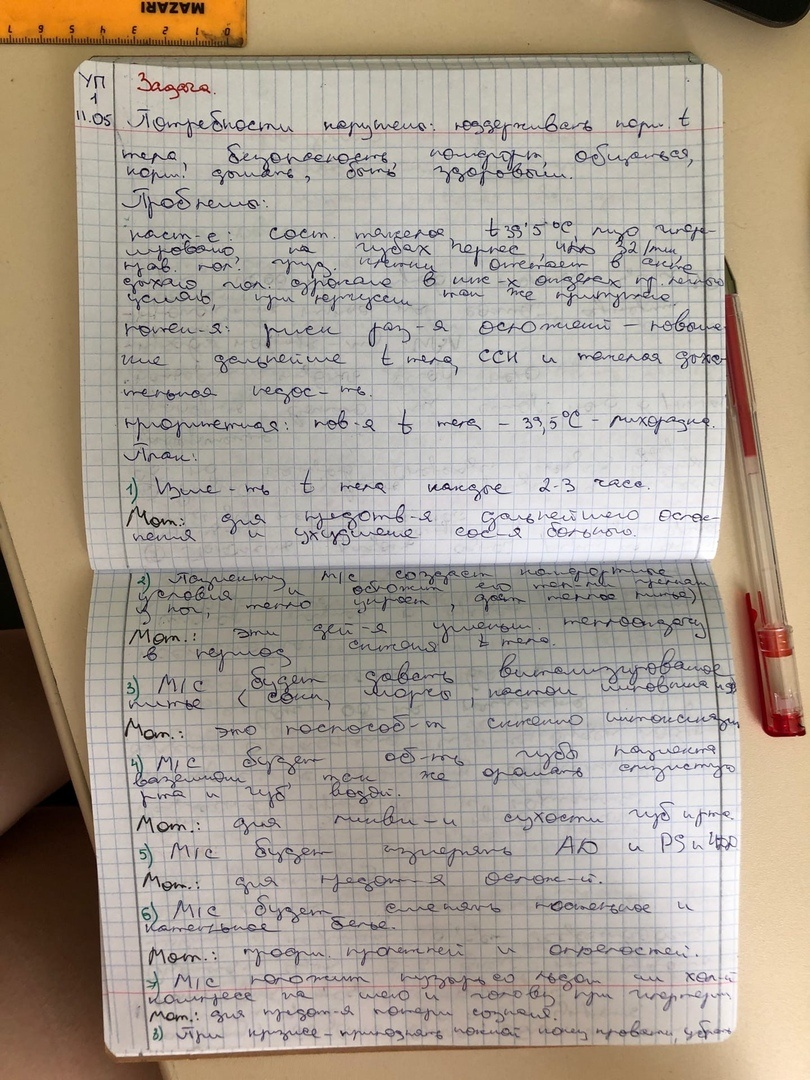 MAZARI
0 1 2 3 4 5 6 7
УП
1
11.05
Задача.
Потребности нарушены: поддерживать норм. t
тела, безопасность, комфорт, общаться,
норм. дышать, быть здоровым.
Проблемы:
наст-е: сост. тяжелое t 39'5°C, лицо гипере-
мировано, на губах герпес, ЧДД 32/мин
прав. пол. груд. клетки отстает в акте
дыхан. гол. дрожание в ниж-х отделах пр. легкого
усилено, при перкуссии там же притупление.
потен-я: риск раз-я осложнений – повыше
ние дальнейшее t тела, ССН и тяжелая дыха-
тельная недос-ть.
приоритетная: пов-я t тела – 39,5°C – лихорадка.
План:
1) Изме-ть t тела каждые 2-3 часа.
Мот.: для предотв-я дальнейшего ослож-
нения и ухудшения сос-я больного.
2) Пациенту м/с создаст комфортные
условия и обложит его теп-ми грелками
у ног, тепло укроет, даст теплое питье)
Мот.: эти дей-я уменьш. теплоотдачу
в период снижения t тела.
3) М/с будет давать витаминизированое
питье (соки, морсы, настой шиповника)
Мот.: это поспособ-т снижению интоксикации
4) М/с будет об-ть губы пациента
вазелином, так же орошать слизистую
рта и губ водой.
Мот.: для ликви-и сухости губ и рта.
5) М/с будет измерять АД и PS и ЧДД
Мот.: для предот-я ослож-й.
6) М/с будет сменять постельное и
нательное белье.
Мот.: профи. пролежней и опрелостей.
7) М/с положит пузырь со льдом или хол-й
компресс на шею и голову при гипертерм
Мот.: для предот-я потери сознания.
8) При кризисе – приподнять ножной конец кровати, убрать